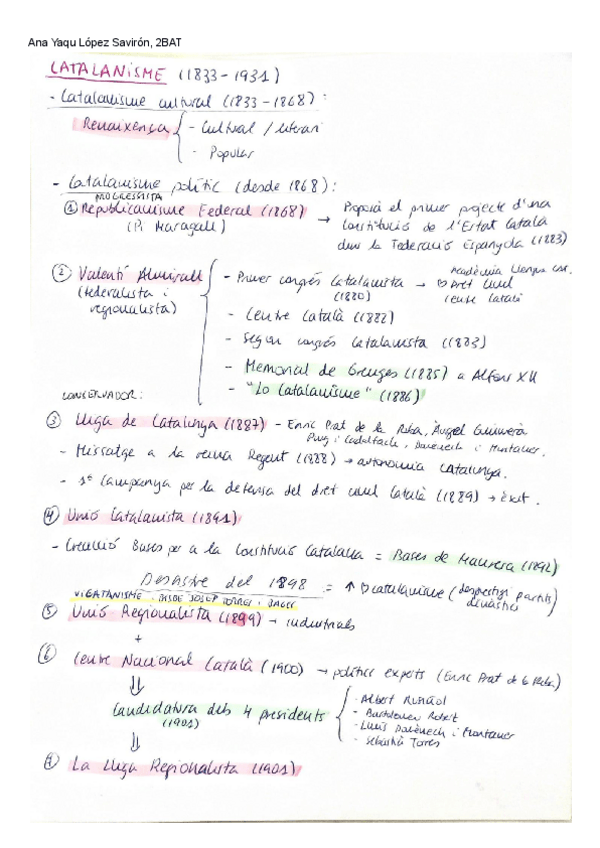 Ana Yaqu López Savirón, 2BAT
CATALANISME (1833-1931)
- Catalanisme cultural (1833-1868):
Renaixença
- Cultural / literari
- Popular
- Catalanisme polític (desde 1868):
PROGRESSISTA
① Republicanisme Federal (1868) → Proposà el primer projecte d'una
(Pi Maragall) Constitució de l'Estat Català
dins la Federació Espanyola (1883)
② Valentí Almirall
(federalista i
regionalista)
- Primer congrés Catalanista (1880) → Acadèmia Llengua Cat.
Dret Civil
Centre Català
- Centre Català (1882)
- Segon congrés Catalanista (1883)
- Memorial de Greuges (1885) a Alfons XII
- "Lo Catalanisme" (1886)
CONSERVADOR:
③ Lliga de Catalunya (1887) - Enric Prat de la Riba, Àngel Guimerà
Puig i Cadafalch, Domènech i Montaner.
- Missatge a la reina Regent (1888) → autonomia Catalunya.
- 1ª Campanya per la defensa del dret civil Català (1889) → èxit.
④ Unió Catalanista (1891)
- Creació Bases per a la Constitució Catalana = Bases de Manresa (1892)
Desastre del 1898 = ↑ catalanisme (desprestigi partits
dinàstics)
VIGATANISME: BISBE JOSEP TORRAS I BAGES
⑤ Unió Regionalista (1899) → industrials
+
⑥ Centre Nacional Català (1900) → polítics experts (Enric Prat de la Riba)
⇓
Candidatura dels 4 presidents
(1901)
- Albert Rusiñol
- Bartolomeu Robert
- Lluís Domènech i Montaner
- Sebastià Torres
⇓
⑦ La Lliga Regionalista (1901)